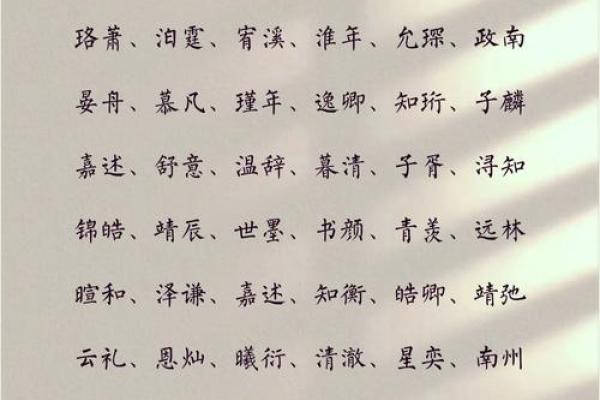 珞萧、泊霆、宥溪、淮年、允琛、政南
晏舟、慕凡、瑾年、逸卿、知珩、子麟
嘉述、舒意、温辞、暮清、子胥、浔知
锦皓、靖辰、世墨、书颜、青羡、远林
暄和、泽谦、嘉述、知衡、皓卿、靖弛
云礼、恩灿、曦衍、清澈、星奕、南州